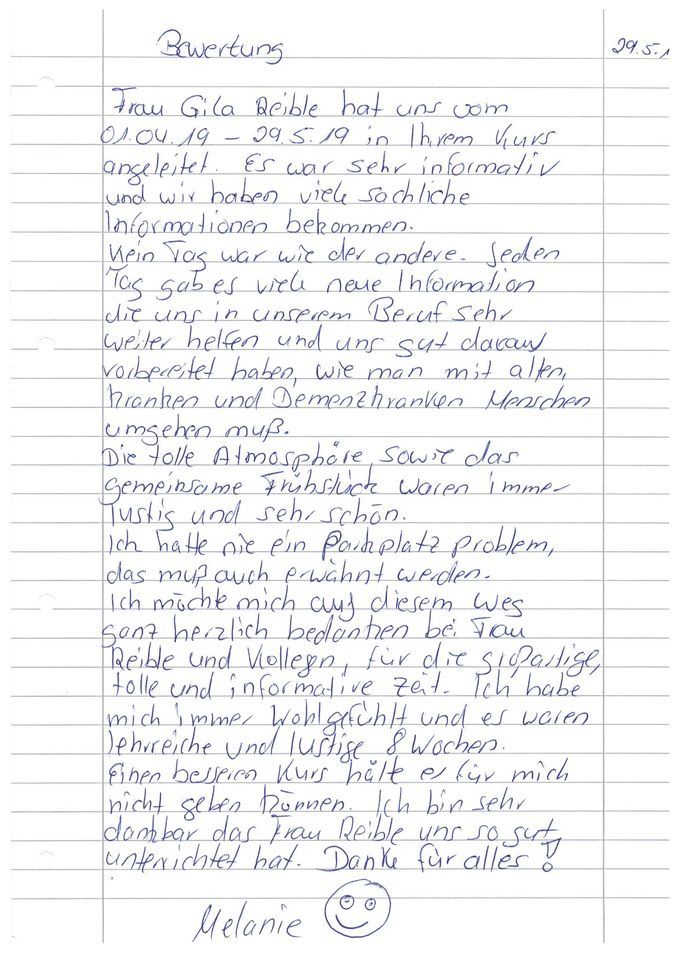 Bewertung
29.5.1
Frau Gila Reible hat uns vom
01.04.19 - 29.5.19 in Ihrem Kurs
angeleitet. Es war sehr informativ
und wir haben viele sachliche
Informationen bekommen.
Kein Tag war wie der andere. Jeden
Tag gab es viele neue Information
die uns in unserem Beruf sehr
weiter helfen und uns gut darauf
vorbereitet haben, wie man mit alten,
kranken und Demenzkranken Menschen
umgehen muß.
Die tolle Atmosphöre sowie das
gemeinsame Frühstück waren immer
lustig und sehr schön.
Ich hatte nie ein Parkplatz problem,
das muß auch erwähnt werden.
Ich möchte mich auf diesem Weg
ganz herzlich bedanken bei Frau
Reible und Kollegn, für die großartige,
tolle und informative Zeit. Ich habe
mich immer Wohl gefühlt und es waren
lehrreiche und lustige 8 Wochen.
Einen besseren Kurs hätte es für mich
nicht geben können. Ich bin sehr
dankbar das Frau Reible uns so gut
unterrichtet hat. Danke für alles!
Melanie